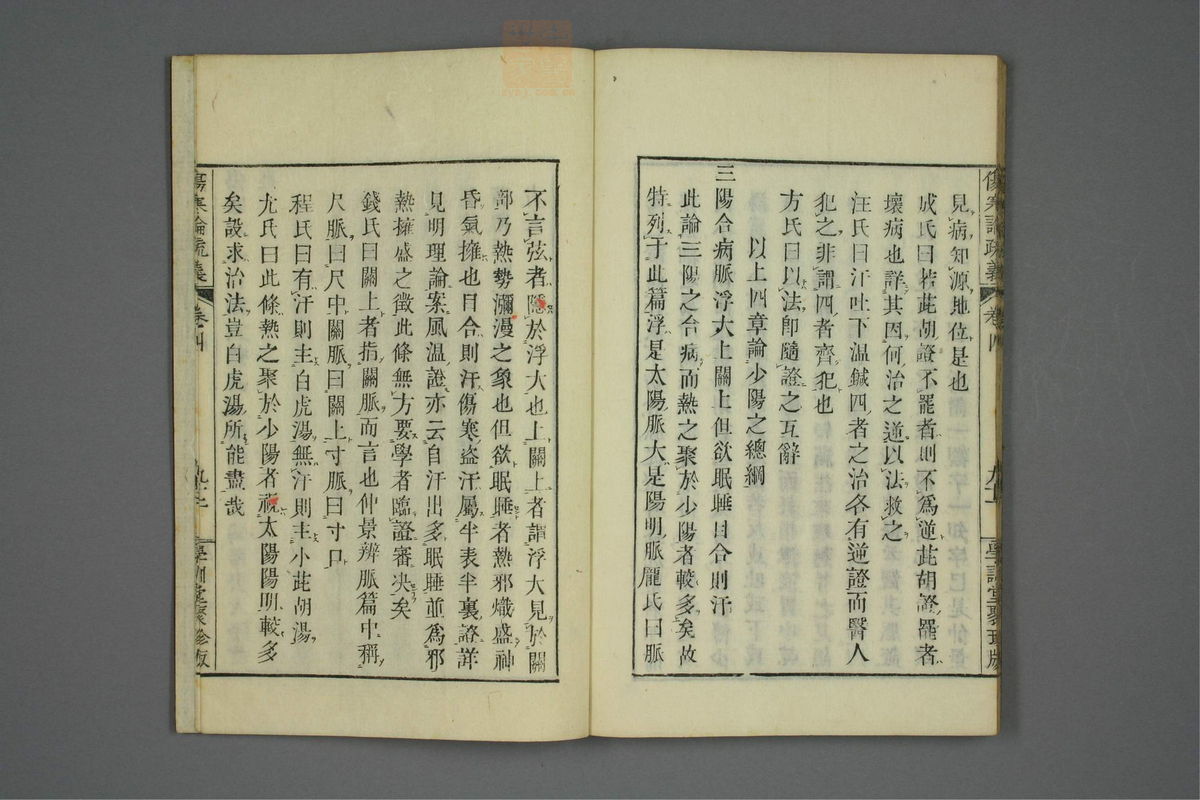 傷寒論疏義
卷四
學訓堂聚珍版
見病知源地位是也
成氏曰若茈胡證不罷者則不爲逆茈胡證罷者
壞病也詳其因何治之逆以法救之
汪氏曰汗吐下温鍼四者之治各有逆證而醫人
犯之非謂四者齊犯也
方氏曰以法卽隨證之互辭
以上四章論少陽之總綱
三陽合病脈浮大上關上但欲眠睡目合則汗
此論三陽之合病而熱之聚於少陽者較多矣故
特列于此篇浮是太陽脈大是陽明脈龐氏曰脈
不言弦者隱於浮大也上關上者謂浮大見於關
部乃熱勢瀰漫之象也但欲眠睡者熱邪熾盛神
昏氣擁也目合則汗傷寒盗汗屬半表半裏證詳
見明理論案風温證亦云自汗出多眠睡並爲邪
熱擁盛之徵此條無方要學者臨證審决矣
錢氏曰關上者指關脈而言也仲景辨脈篇中稱
尺脈曰尺中關脈曰關上寸脈曰寸口
程氏曰有汗則主白虎湯無汗則主小茈胡湯
尤氏曰此條熱之聚於少陽者視太陽陽明較多
矣設求治法豈白虎湯所能盡哉
傷寒論疏義
卷四
學訓堂聚珍版